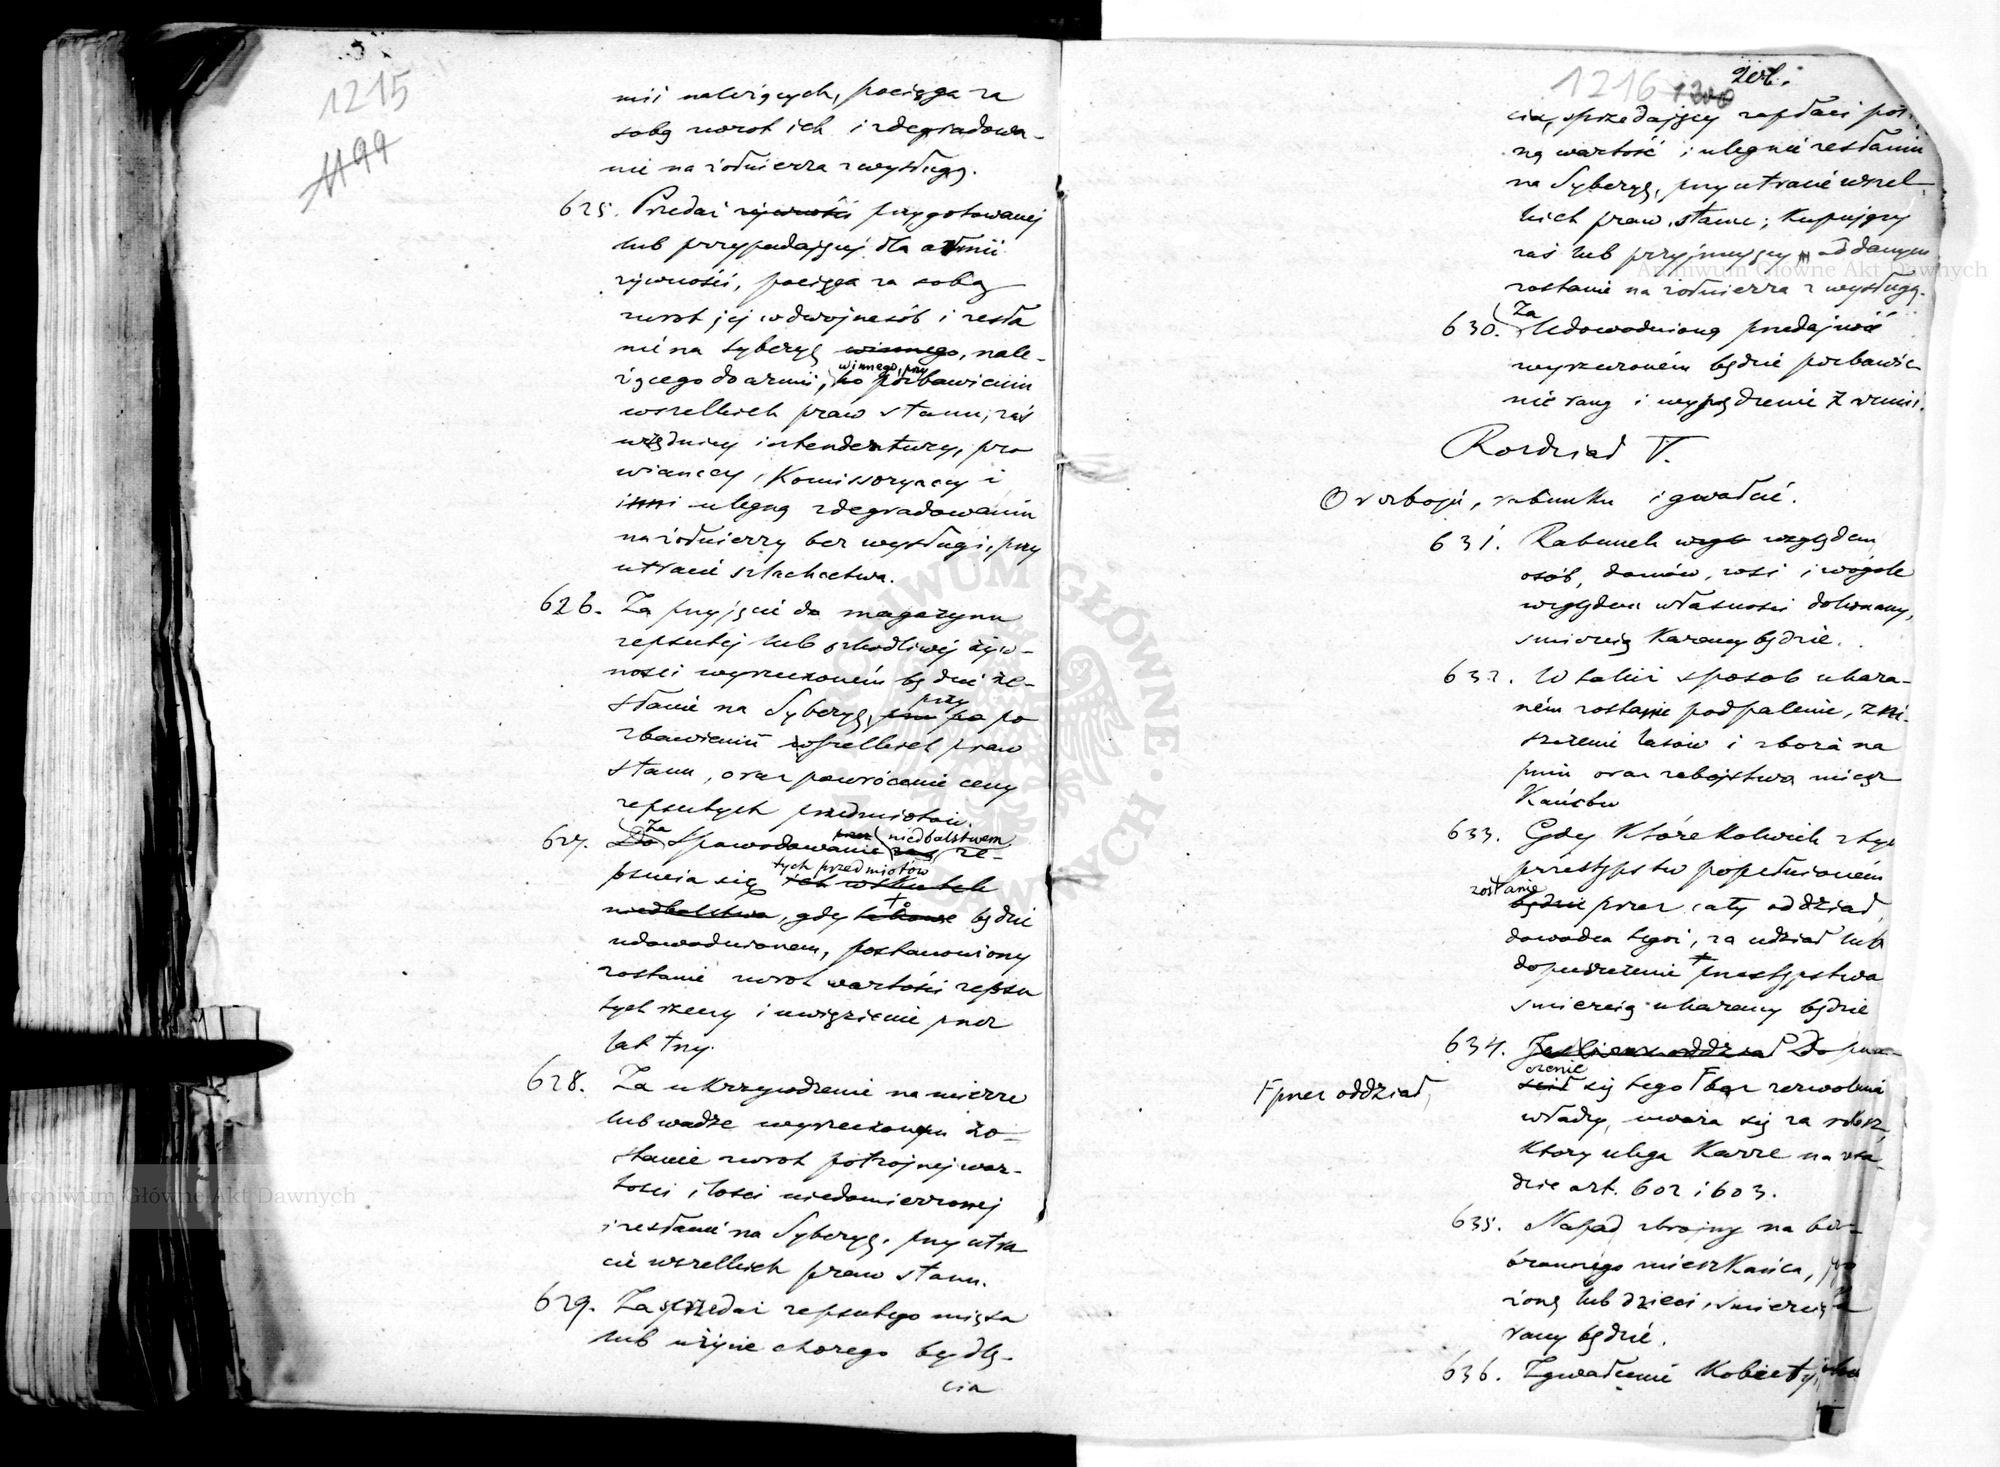 1215
1199
mii należących, pociąga za
sobą zwrot ich i zdegradowa-
nie na żołnierza z wysługą.
625. Przedaż żywności przygotowanej
lub przypadającej dla armii
żywności, pociąga za sobą
zwrot jej w dwójnasób i zesła
nie na Syberyę winnego, nale-
żącego do armii, winnego, przy pozbawieniu
wszelkich praw stanu; zaś
urzędnicy intendentury, pro
wianccy, Komissoryaccy i
inni ulegną zdegradowaniu
na żołnierzy bez wysługi, przy
utracie szlachectwa.
626. Za przyjęcie do magazynu
zepsutej lub szkodliwej żyw-
ności wyrzeczoném będzie ze-
słanie na Syberyę, przy po
zbawieniu wszelkich praw
stanu, oraz powrócenie ceny
zepsutych przedmiotów.
627. Za Spowodowanie niedbalstwem ze-
psucia się tych przedmiotów ich wskutek
niedbalstwa, gdy takowe będzie
udowodnionem, postanowiony
zostanie zwrot wartości zepsu
tych rzeczy i uwięzienie przez
lat trzy.
628. Za ukrzywdzenie na mierze
lub wadze wyrzeczonym zo-
stanie zwrot potrójnej war-
tości ilości niedomierzonej
i zesłanie na Syberyę, przy utra
cie wszelkich praw stanu.
629. Za sprzedaż zepsutego mięsa
lub użycie chorego bydlę-
cia
1216 1200
cia, sprzedający zapłaci peł-
ną wartość i ulegnie zesłaniu
na Syberyę, przy utracie wszel-
kich praw stanu; Kupujący
zaś lub przyjmujący oddanym
zostanie na żołnierza z wysługą.
630. Za Udowodnioną przedajność
wyrzeczoném będzie pozbawie-
nie rang i wypędzenie z armii.
Rozdział V.
O rozboju, rabunku i gwałcie.
631. Rabunek względem
osób, domów, wsi i wogóle
względem własności dokonany,
śmiercią Karany będzie.
632. W takiż sposób ukara-
ném zostanie podpalenie, zni-
szczenie lasów i zboża na
pniu oraz zabójstwo miesz
Kańców
633. Gdy Którekolwiek z tych
przestępstw popełnioném
zostanie będzie przez cały oddział,
dowódca tegoż, za udział lub
dopuszczenie + przestępstwa
śmiercią ukarany będzie
634. Jeśli oddział Dopusz-
czenie się tego Ƒ bez zezwolenia
władzy, uważa się za rokosz,
Który ulega Karze na zsa-
dzie art. 602 i 603.
Ƒ przez oddział,
635. Napad zbrojny na bez-
bronnego mieszkańca,
żonę lub dzieci, śmiercią ka
rany będzie.
636. Zgwałcenie Kobiety,